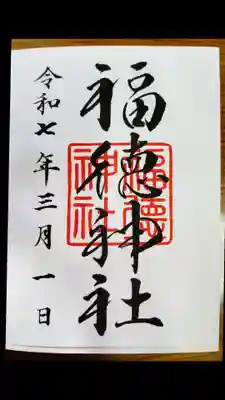 福徳神社
福徳
神社
令和七年三月一日